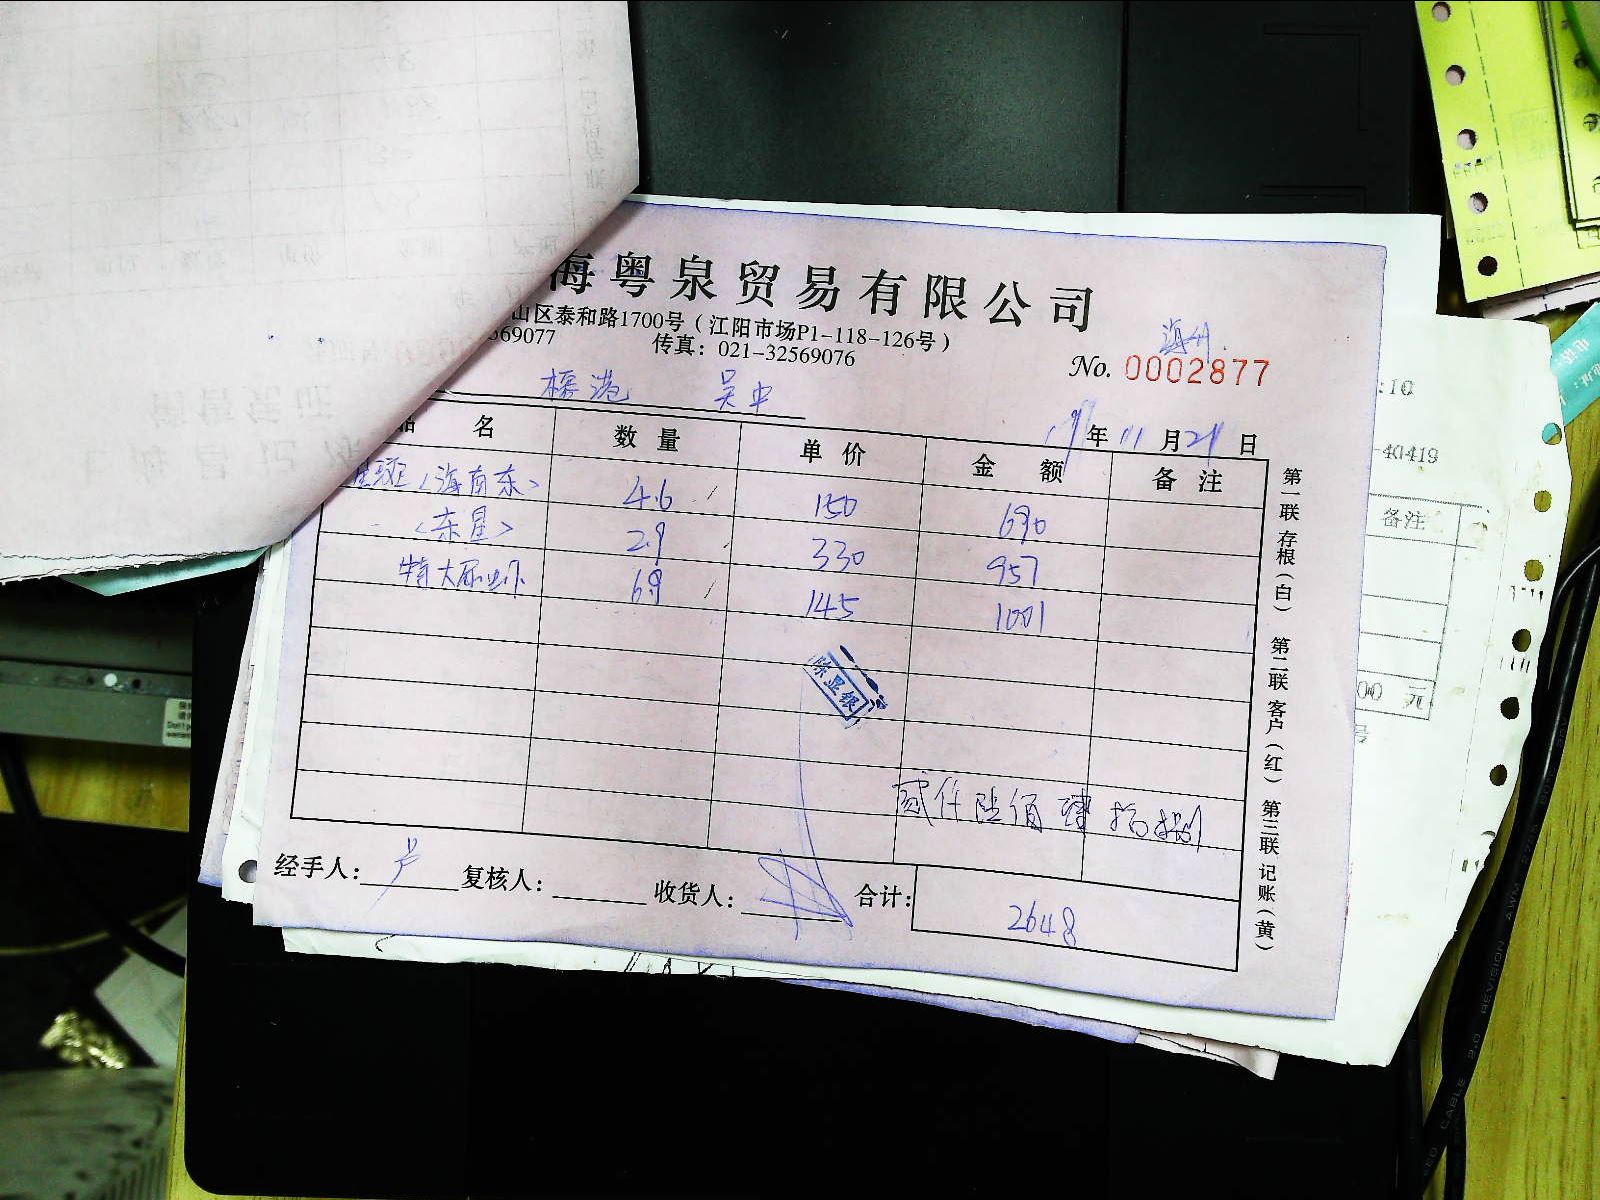 海粤泉贸易有限公司
山区泰和路1700号（江阳市场P1-118-126号）
569077 传真：021-32569076
海州
No. 0002877
吴中
年 11 月 21 日
品 名 数 量 单 价 金 额 备 注
星斑〈海南东〉 4.6 150 690
〈东星〉 2.9 330 957
特大尿虾 6.9 145 1001
陈显银
贰仟陆佰肆拾捌
经手人： 复核人： 收货人： 合计： 2648
第一联 存根（白） 第二联 客户（红） 第三联 记账（黄）
:10
-40419
备注
00 元
号